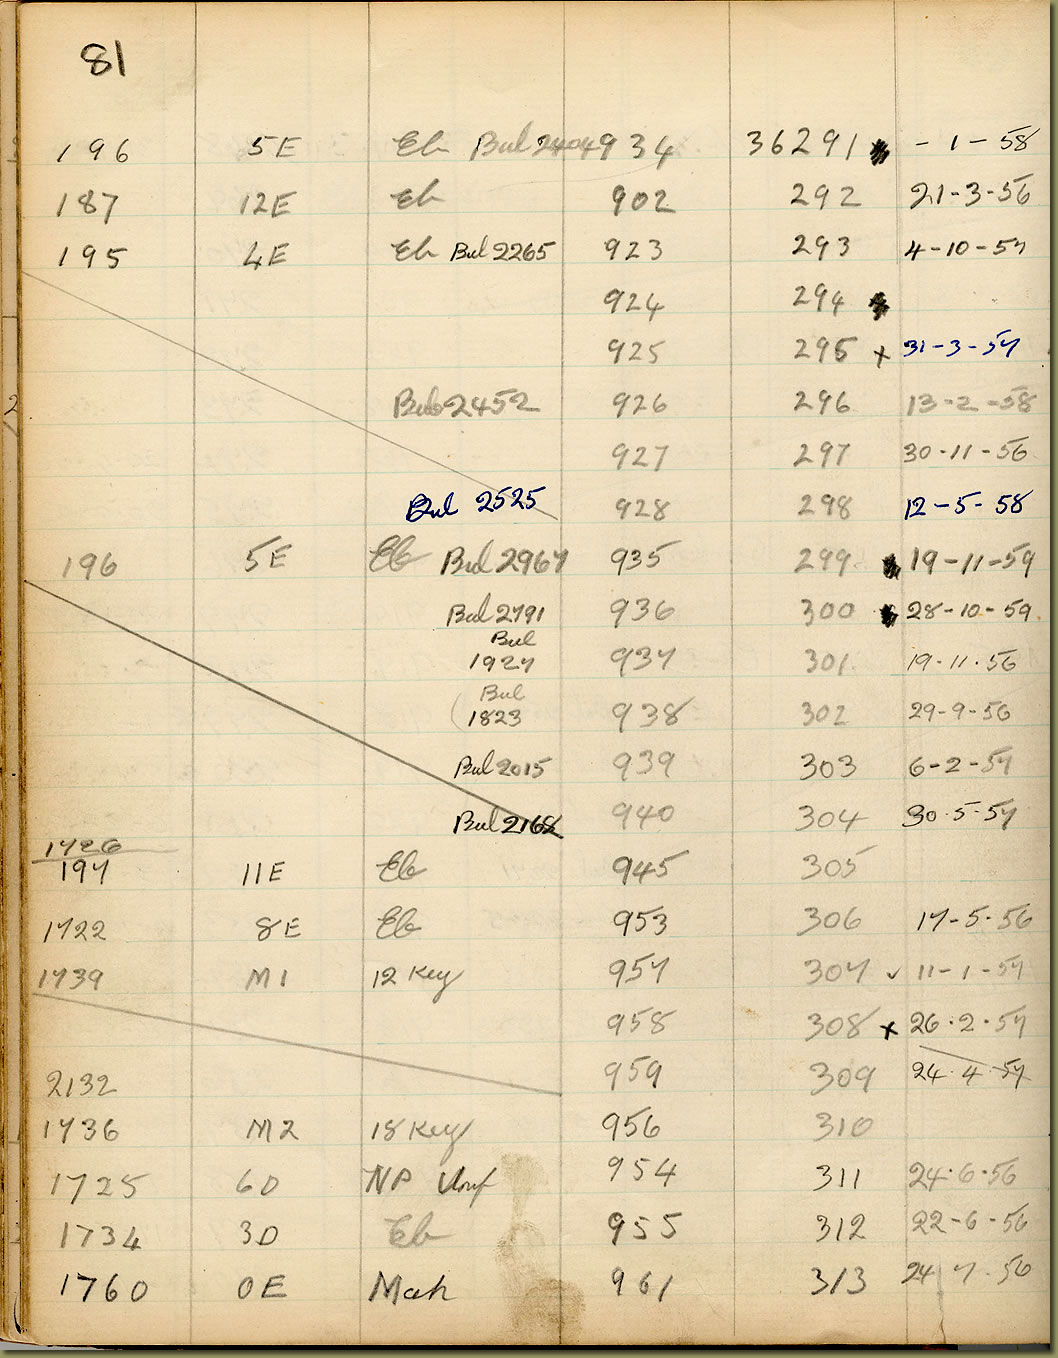 81
196 5E Eb Bul 2404 934 36291 - 1 - 58
187 12E Eb 902 292 21-3-56
195 4E Eb Bul 2265 923 293 4-10-57
924 294
925 295 x 31-3-57
Bul 2452 926 296 13-2-58
927 297 30-11-56
Bul 2525 928 298 12-5-58
196 5E Eb Bul 2967 935 299 19-11-59
Bul 2791 936 300 28-10-59
Bul
1927 937 301 19.11.56
Bul
1823 938 302 29-9-56
Bul 2015 939 303 6-2-57
Bul 2168 940 304 30.5-57
1726
197 11E Eb 945 305
1722 8E Eb 953 306 17-5-56
1739 M1 12 Key 957 307 ✓ 11-1-57
958 308 x 26.2.57
2132 959 309 24.4.57
1736 M2 18 Key 956 310
1725 6D NP 954 311 24.6.56
1734 3D Eb 955 312 22-6-56
1760 0E Mah 961 313 24.7.56